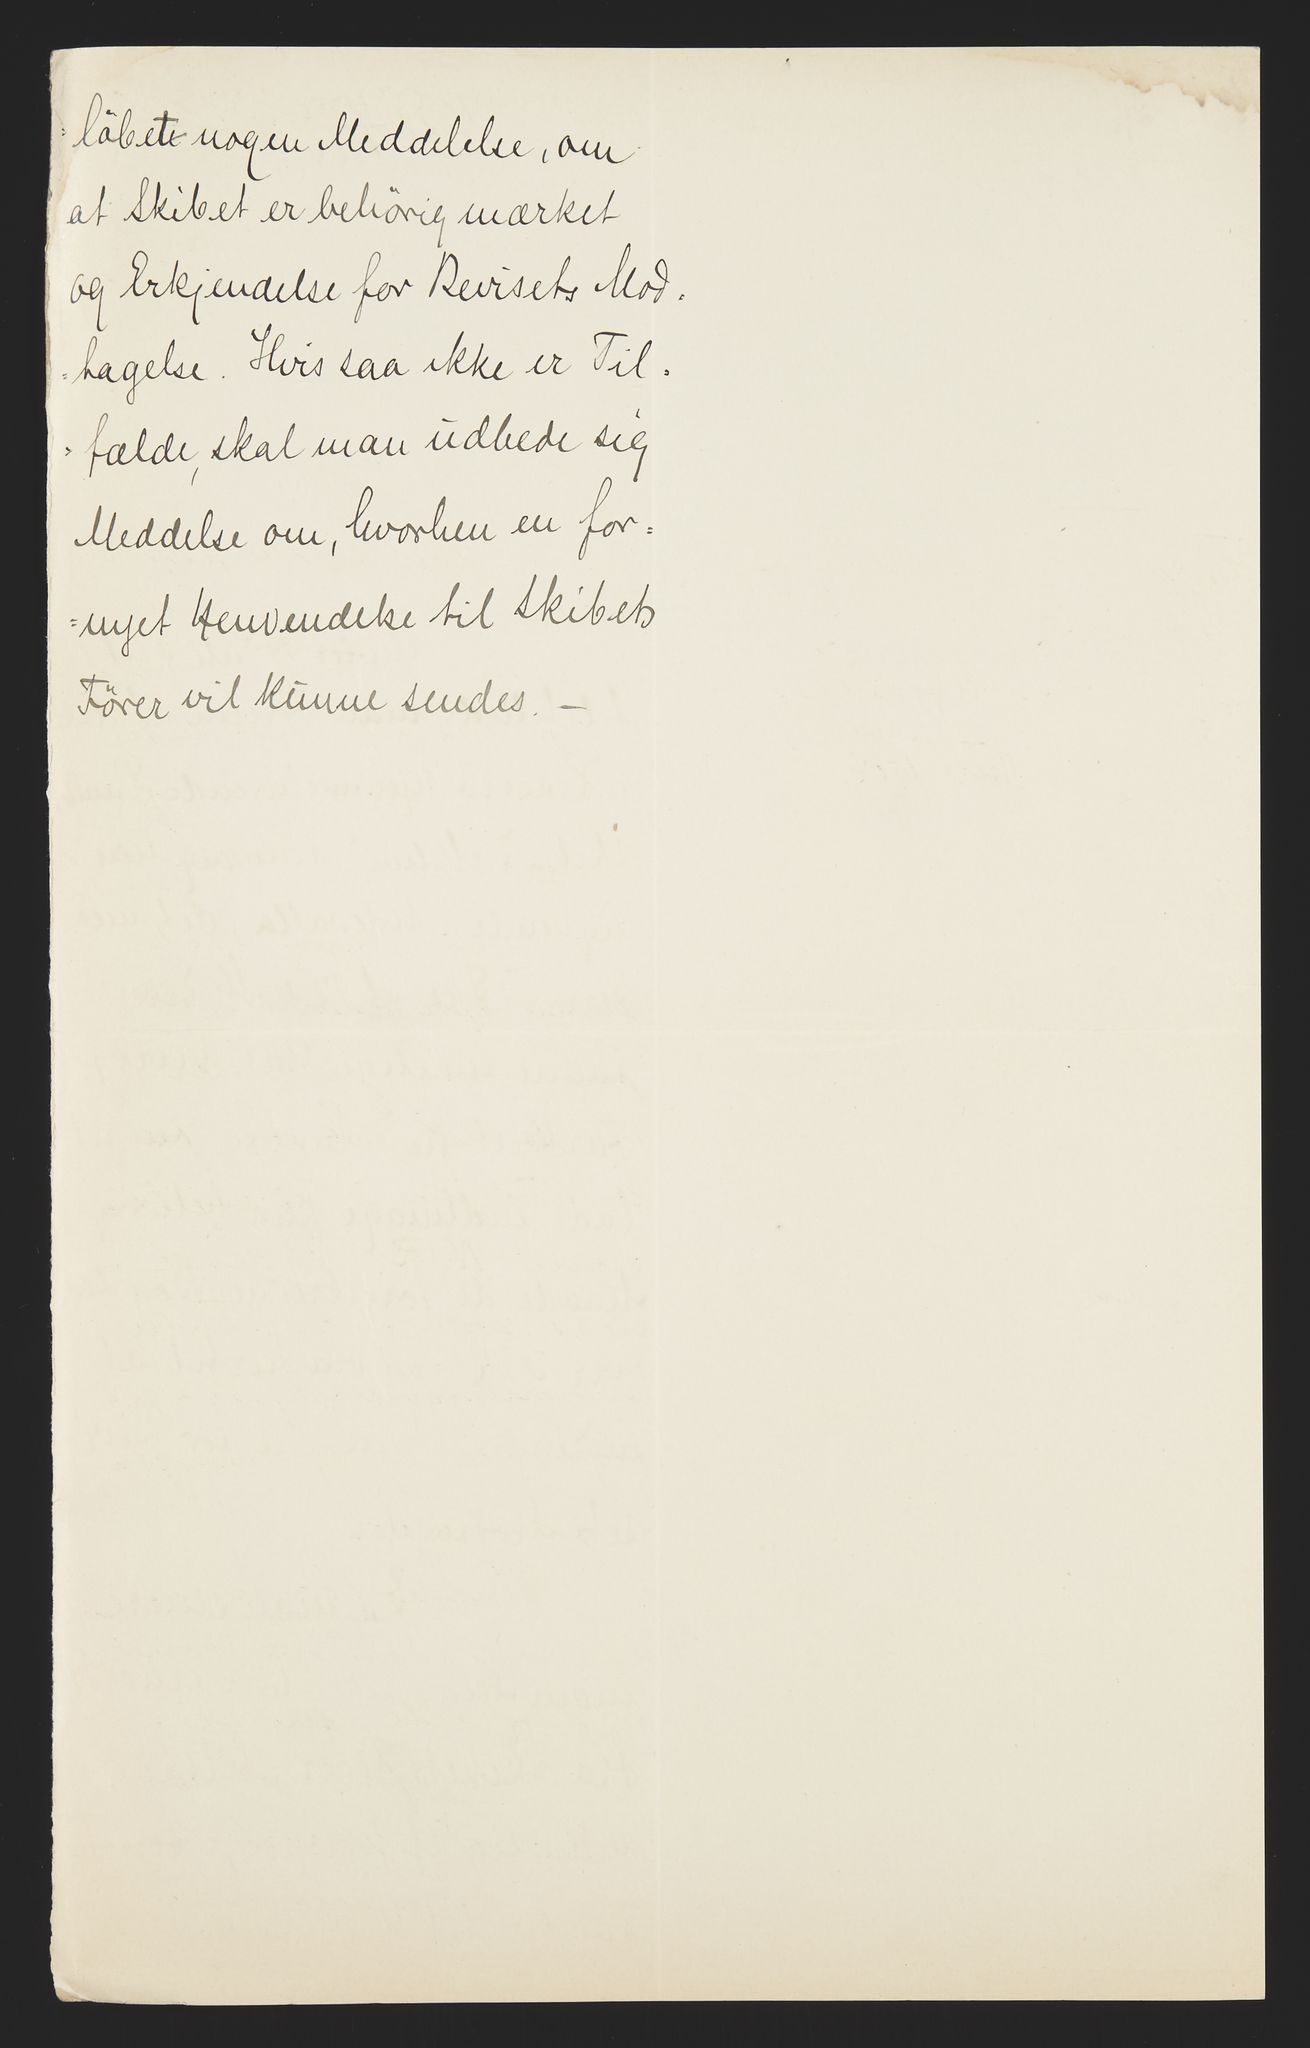 =löbet nogen Meddelelse, om
at Skibet er behörig mærket
og Erkjendelse for Bevisets Mod=
=tagelse. Hvis saa ikke er Til=
=fælde, skal man udbede sig
Meddelse om, hvorhen en for=
=nyet Henvendelse til Skibets
Förer vil kunne sendes. —